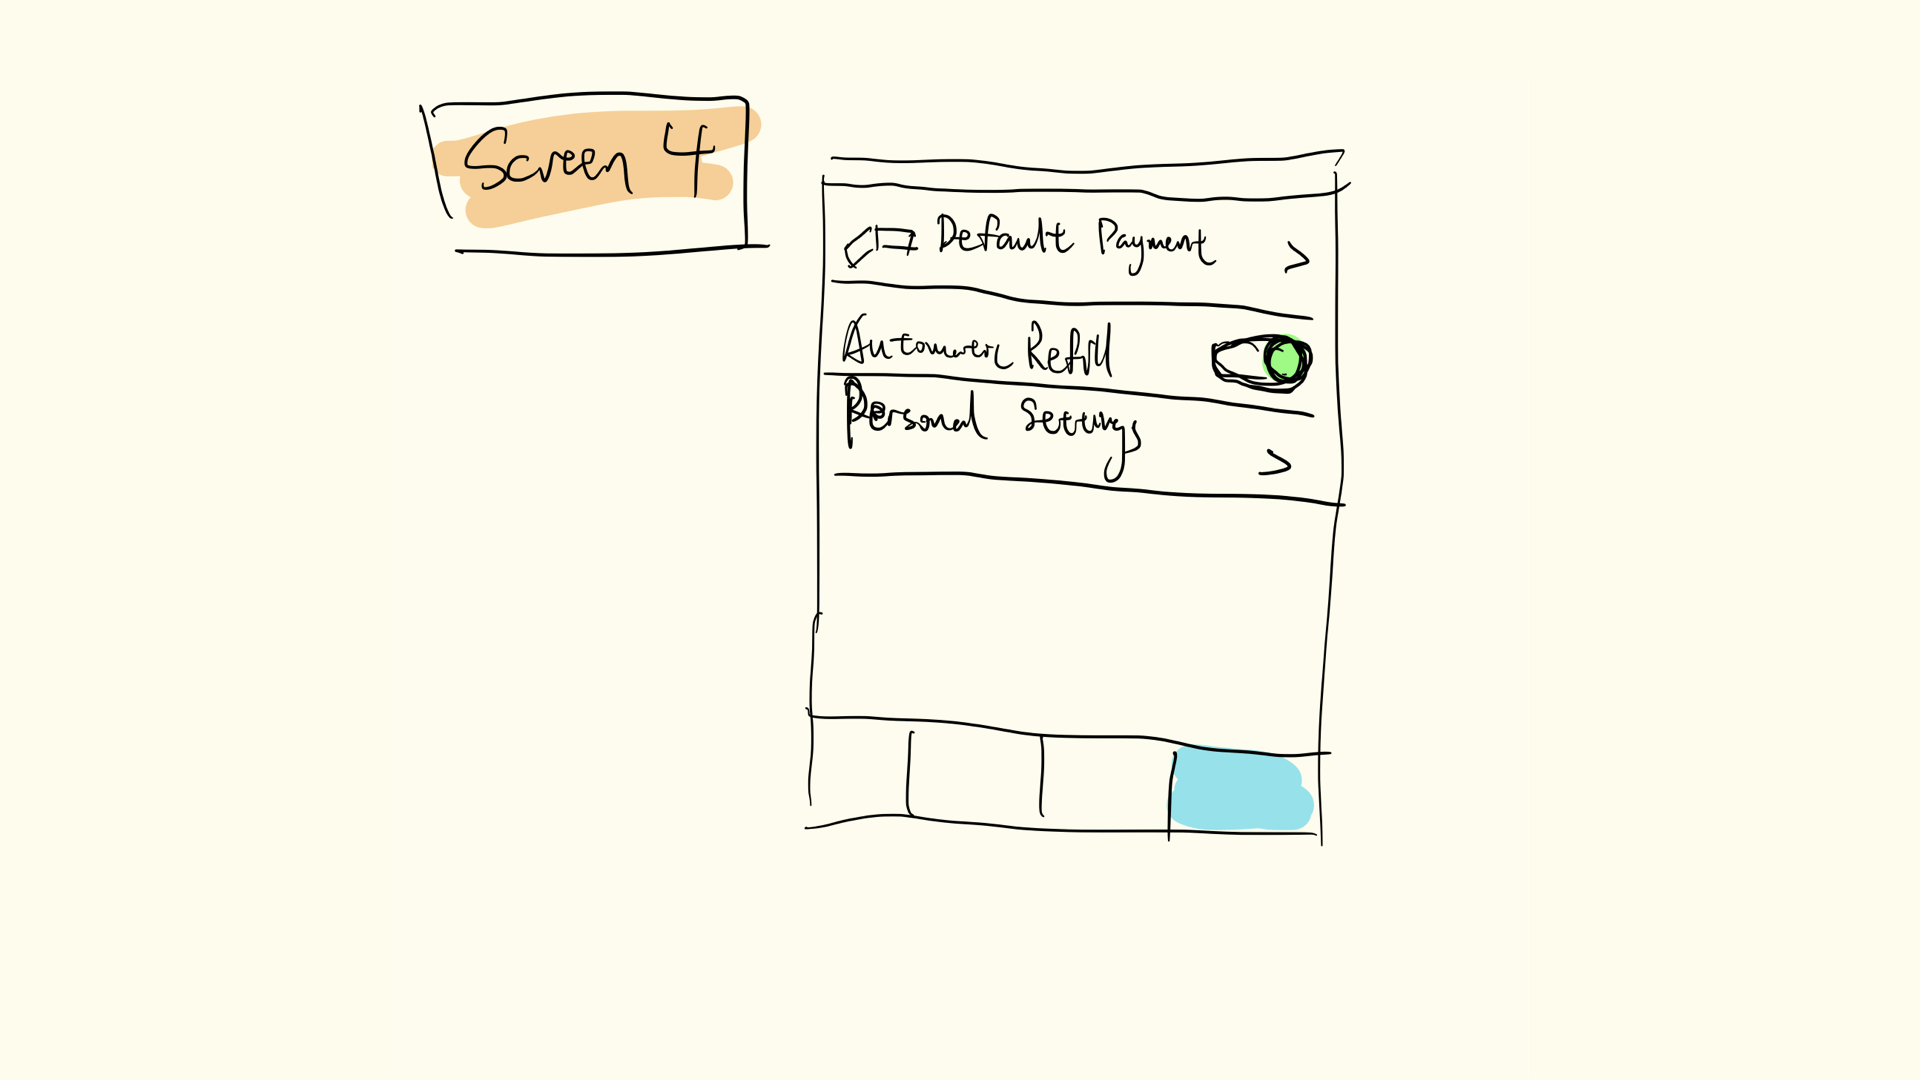 Screen 4
Default Payment >
Automatic Refill
Personal Settings
>